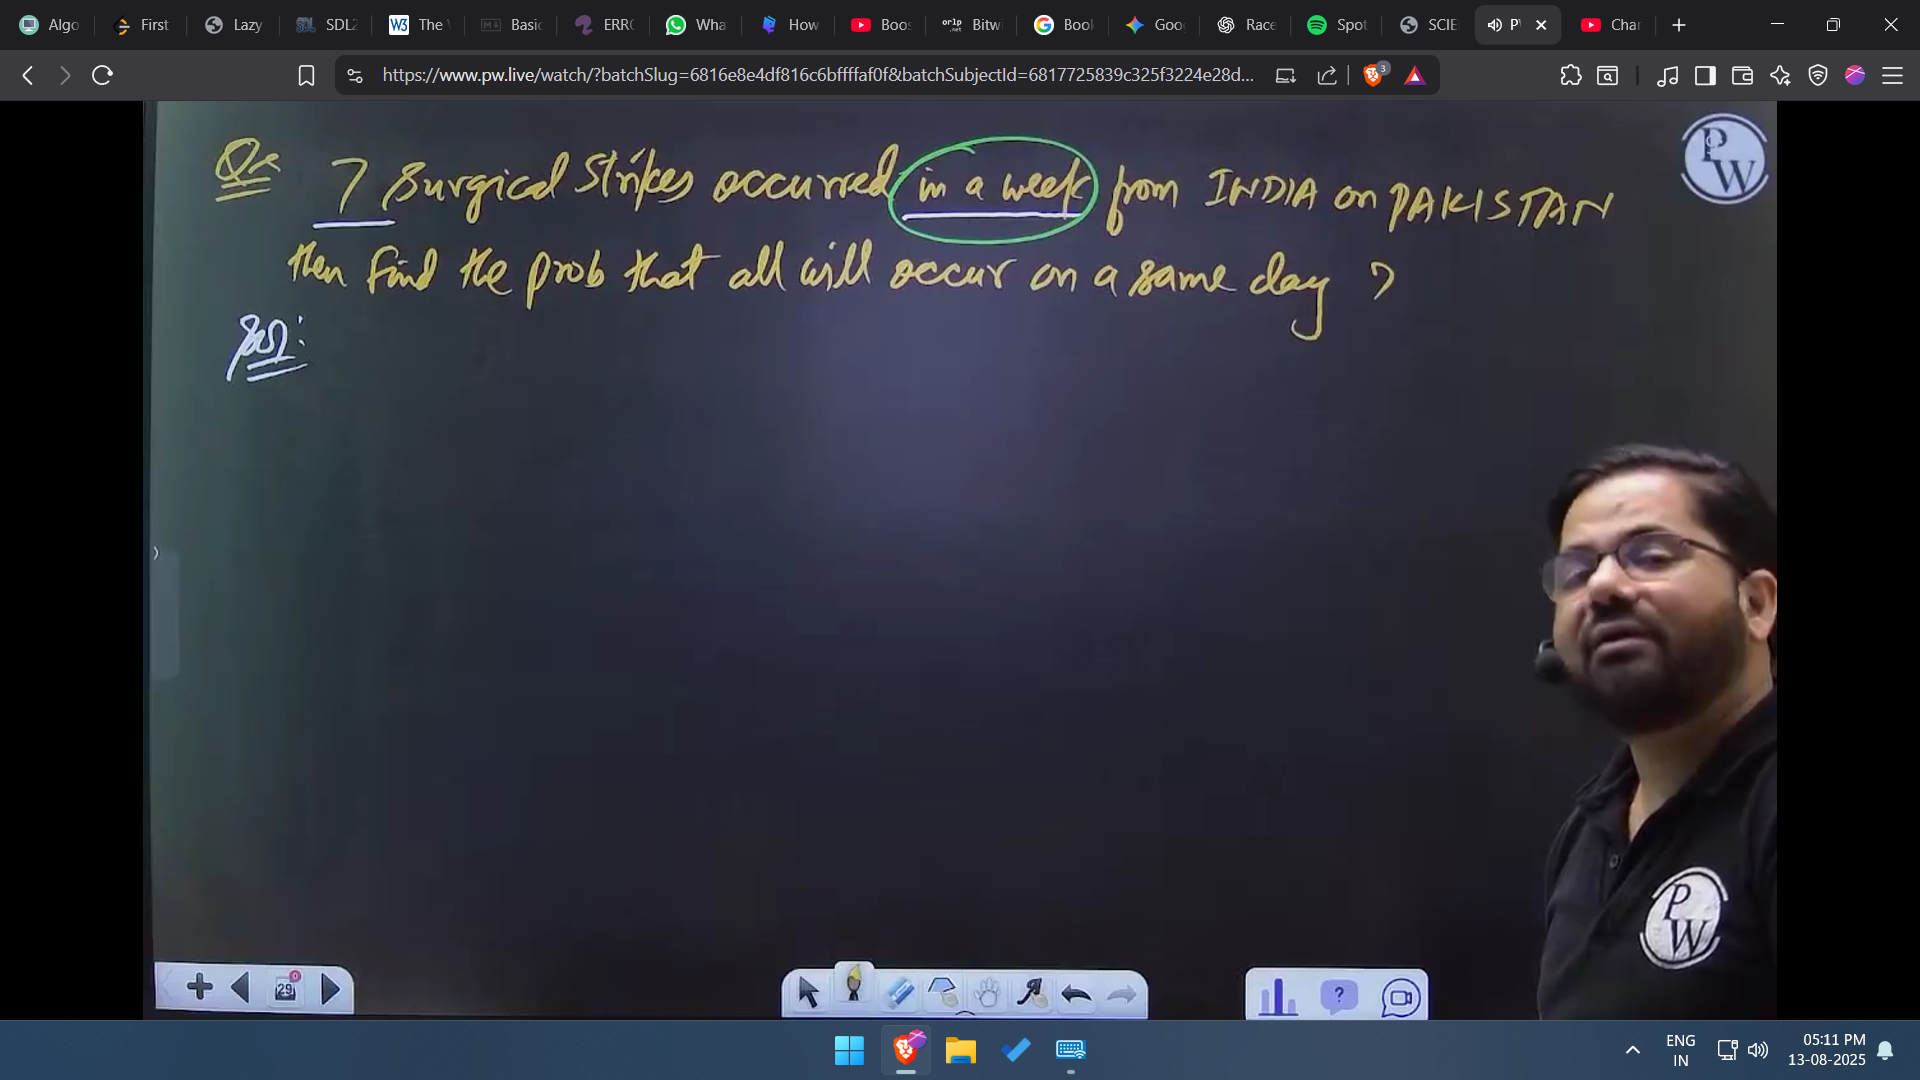 Algo
First
Lazy
SDL2
The
Basic
ERRO
Wha
How
Boos
Bitw
Book
Goo
Race
Spot
SCIE
P
Char
https://www.pw.live/watch/?batchSlug=6816e8e4df816c6bffffaf0f&batchSubjectId=6817725839c325f3224e28d...
3
Qs 7 Surgical Strikes occurred in a week from INDIA on PAKISTAN
then find the prob that all will occur on a same day ?
Sol:
PW
PW
29
0
?
ENG
IN
05:11 PM
13-08-2025